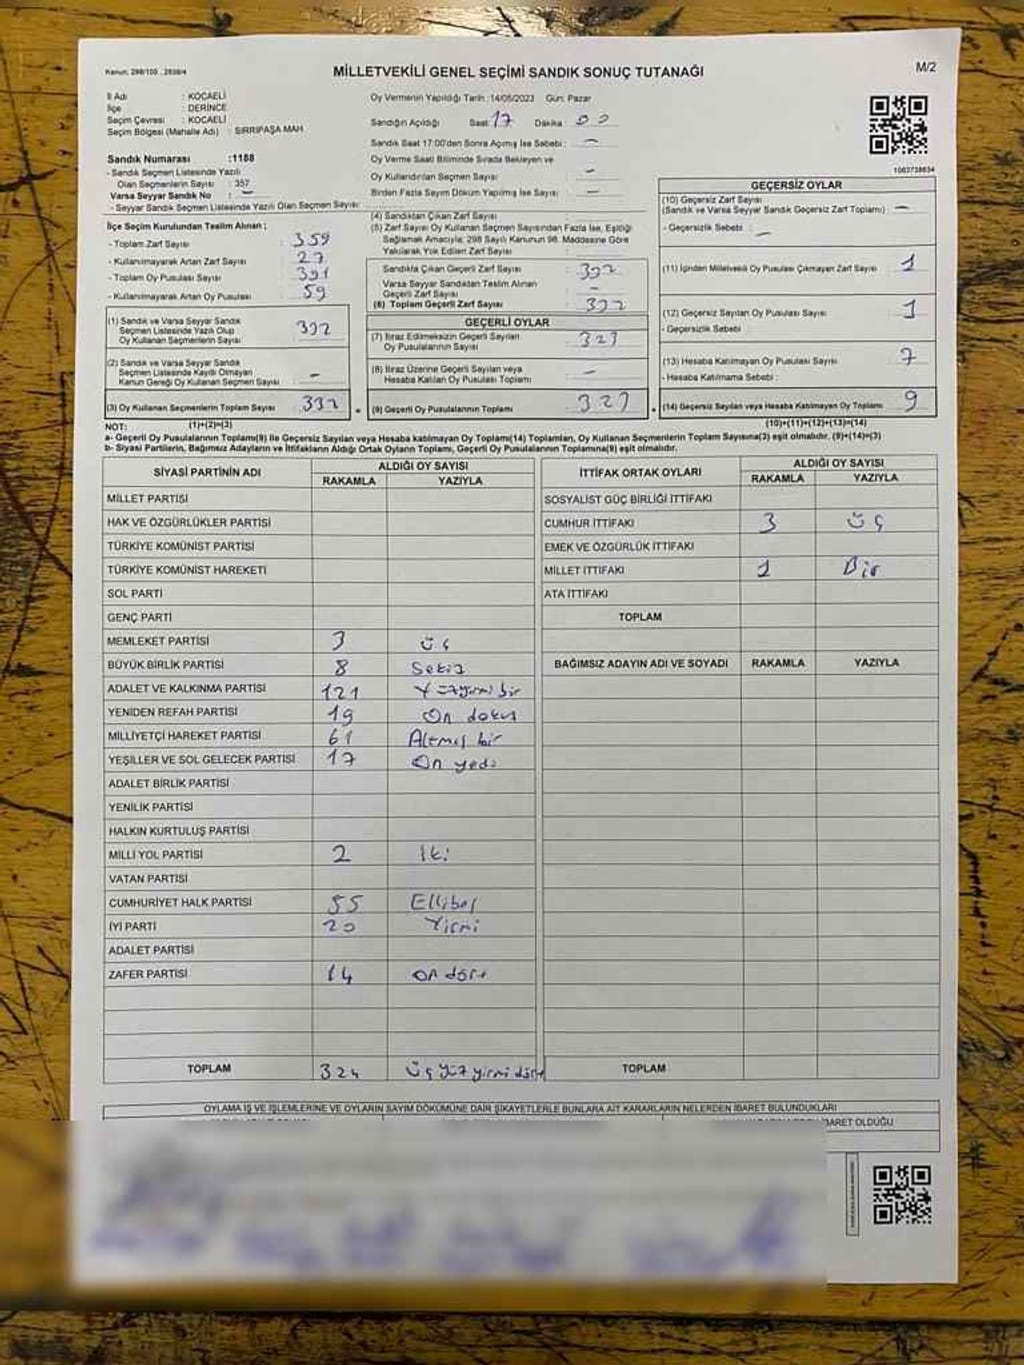 Kanun: 298/105 , 2839/4
MİLLETVEKİLİ GENEL SEÇİMİ SANDIK SONUÇ TUTANAĞI
M/2
İl Adı : KOCAELİ
İlçe : DERİNCE
Seçim Çevresi : KOCAELİ
Seçim Bölgesi (Mahalle Adı) : SIRRIPAŞA MAH.
Sandık Numarası :1188
- Sandık Seçmen Listesinde Yazılı
Olan Seçmenlerin Sayısı : 357
Varsa Seyyar Sandık No : —
- Seyyar Sandık Seçmen Listesinde Yazılı Olan Seçmen Sayısı :
İlçe Seçim Kurulundan Teslim Alınan ;
- Toplam Zarf Sayısı : 359
- Kullanılmayarak Artan Zarf Sayısı : 27
- Toplam Oy Pusulası Sayısı : 391
- Kullanılmayarak Artan Oy Pusulası : 59
(1) Sandık ve Varsa Seyyar Sandık
Seçmen Listesinde Yazılı Olup
Oy Kullanan Seçmenlerin Sayısı : 332
(2) Sandık ve Varsa Seyyar Sandık
Seçmen Listesinde Kayıtlı Olmayan
Kanun Gereği Oy Kullanan Seçmen Sayısı : —
(3) Oy Kullanan Seçmenlerin Toplam Sayısı : 332
(1)+(2)=(3)
Oy Vermenin Yapıldığı Tarih :14/05/2023 Gün: Pazar
Sandığın Açıldığı Saat: 17 Dakika : 00
Sandık Saat 17:00'den Sonra Açımış İse Sebebi : —
Oy Verme Saati Bitiminde Sırada Bekleyen ve
Oy Kullandırılan Seçmen Sayısı : —
Birden Fazla Sayım Döküm Yapılmış İse Sayısı : —
(4) Sandıktan Çıkan Zarf Sayısı :
(5) Zarf Sayısı Oy Kullanan Seçmen Sayısından Fazla İse, Eşitliği
Sağlamak Amacıyla; 298 Sayılı Kanunun 98. Maddesine Göre
Yakılarak Yok Edilen Zarf Sayısı :
Sandıkta Çıkan Geçerli Zarf Sayısı : 332
Varsa Seyyar Sandıktan Teslim Alınan
Geçerli Zarf Sayısı : —
(6) Toplam Geçerli Zarf Sayısı : 332
GEÇERLİ OYLAR
(7) İtiraz Edilmeksizin Geçerli Sayılan
Oy Pusulalarının Sayısı : 323
(8) İtiraz Üzerine Geçerli Sayılan veya
Hesaba Katılan Oy Pusulası Toplamı : —
(9) Geçerli Oy Pusulalarının Toplamı : 323
1063738634
GEÇERSİZ OYLAR
(10) Geçersiz Zarf Sayısı
(Sandık ve Varsa Seyyar Sandık Geçersiz Zarf Toplamı) : —
- Geçersizlik Sebebi : —
(11) İçinden Milletvekili Oy Pusulası Çıkmayan Zarf Sayısı : 1
(12) Geçersiz Sayılan Oy Pusulası Sayısı : 1
- Geçersizlik Sebebi :
(13) Hesaba Katılmayan Oy Pusulası Sayısı : 7
- Hesaba Katılmama Sebebi :
(14) Geçersiz Sayılan veya Hesaba Katılmayan Oy Toplamı : 9
(10)+(11)+(12)+(13)=(14)
NOT:
a- Geçerli Oy Pusulalarının Toplamı(9) ile Geçersiz Sayılan veya Hesaba katılmayan Oy Toplamı(14) Toplamları, Oy Kullanan Seçmenlerin Toplam Sayısına(3) eşit olmalıdır. (9)+(14)=(3)
b- Siyasi Partilerin, Bağımsız Adayların ve İttifakların Aldığı Oyların Toplamı, Geçerli Oy Pusulalarının Toplamına(9) eşit olmalıdır.
SİYASİ PARTİNİN ADI ALDIĞI OY SAYISI
RAKAMLA YAZIYLA
MİLLET PARTİSİ
HAK VE ÖZGÜRLÜKLER PARTİSİ
TÜRKİYE KOMÜNİST PARTİSİ
TÜRKİYE KOMÜNİST HAREKETİ
SOL PARTİ
GENÇ PARTİ
MEMLEKET PARTİSİ 3 üç
BÜYÜK BİRLİK PARTİSİ 8 Sekiz
ADALET VE KALKINMA PARTİSİ 121 Yüzyirmi bir
YENİDEN REFAH PARTİSİ 19 On dokuz
MİLLİYETÇİ HAREKET PARTİSİ 61 Altmış bir
YEŞİLLER VE SOL GELECEK PARTİSİ 17 On yedi
ADALET BİRLİK PARTİSİ
YENİLİK PARTİSİ
HALKIN KURTULUŞ PARTİSİ
MİLLİ YOL PARTİSİ 2 İki
VATAN PARTİSİ
CUMHURİYET HALK PARTİSİ 55 Ellibeş
İYİ PARTİ 20 Yirmi
ADALET PARTİSİ
ZAFER PARTİSİ 14 on dört
TOPLAM 324 Üç yüz yirmi dört
İTTİFAK ORTAK OYLARI ALDIĞI OY SAYISI
RAKAMLA YAZIYLA
SOSYALİST GÜÇ BİRLİĞİ İTTİFAKI
CUMHUR İTTİFAKI 3 üç
EMEK VE ÖZGÜRLÜK İTTİFAKI
MİLLET İTTİFAKI 1 Bir
ATA İTTİFAKI
TOPLAM
BAĞIMSIZ ADAYIN ADI VE SOYADI RAKAMLA YAZIYLA
TOPLAM
OYLAMA İŞ VE İŞLEMLERİNE VE OYLARIN SAYIM DÖKÜMÜNE DAİR ŞİKAYETLERLE BUNLARA AİT KARARLARIN NELERDEN İBARET BULUNDUKLARI
BARET OLDUĞU